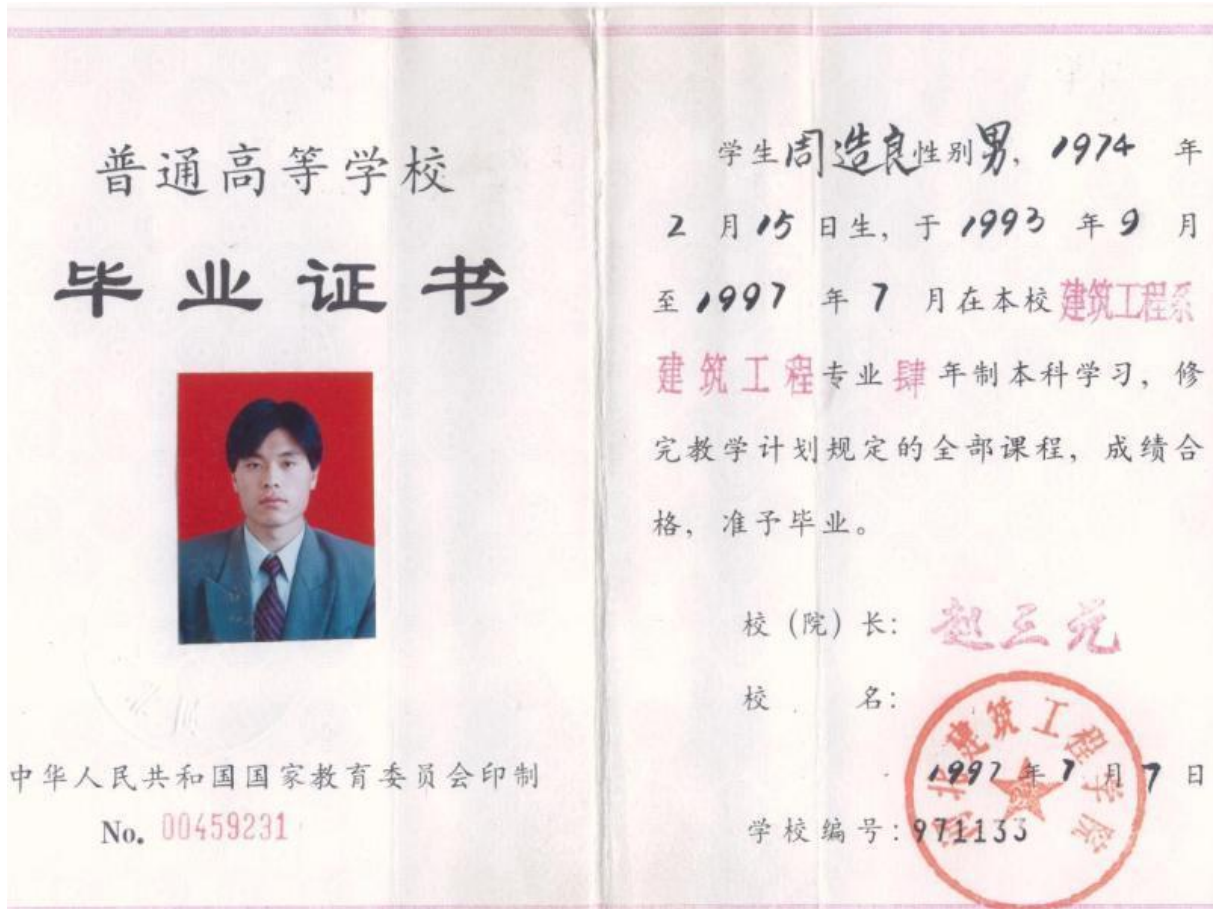 普通高等学校
毕业证书
中华人民共和国国家教育委员会印制
No. 00459231
学生周造良性别男，1974 年
2 月 15 日生，于 1993 年 9 月
至 1997 年 7 月在本校 建筑工程系
建筑工程专业 肆 年制本科学习，修
完教学计划规定的全部课程，成绩合
格，准予毕业。
校（院）长：赵三元
校 名：
河北建筑工程学院
1997 年 7 月 7 日
学校编号：971133